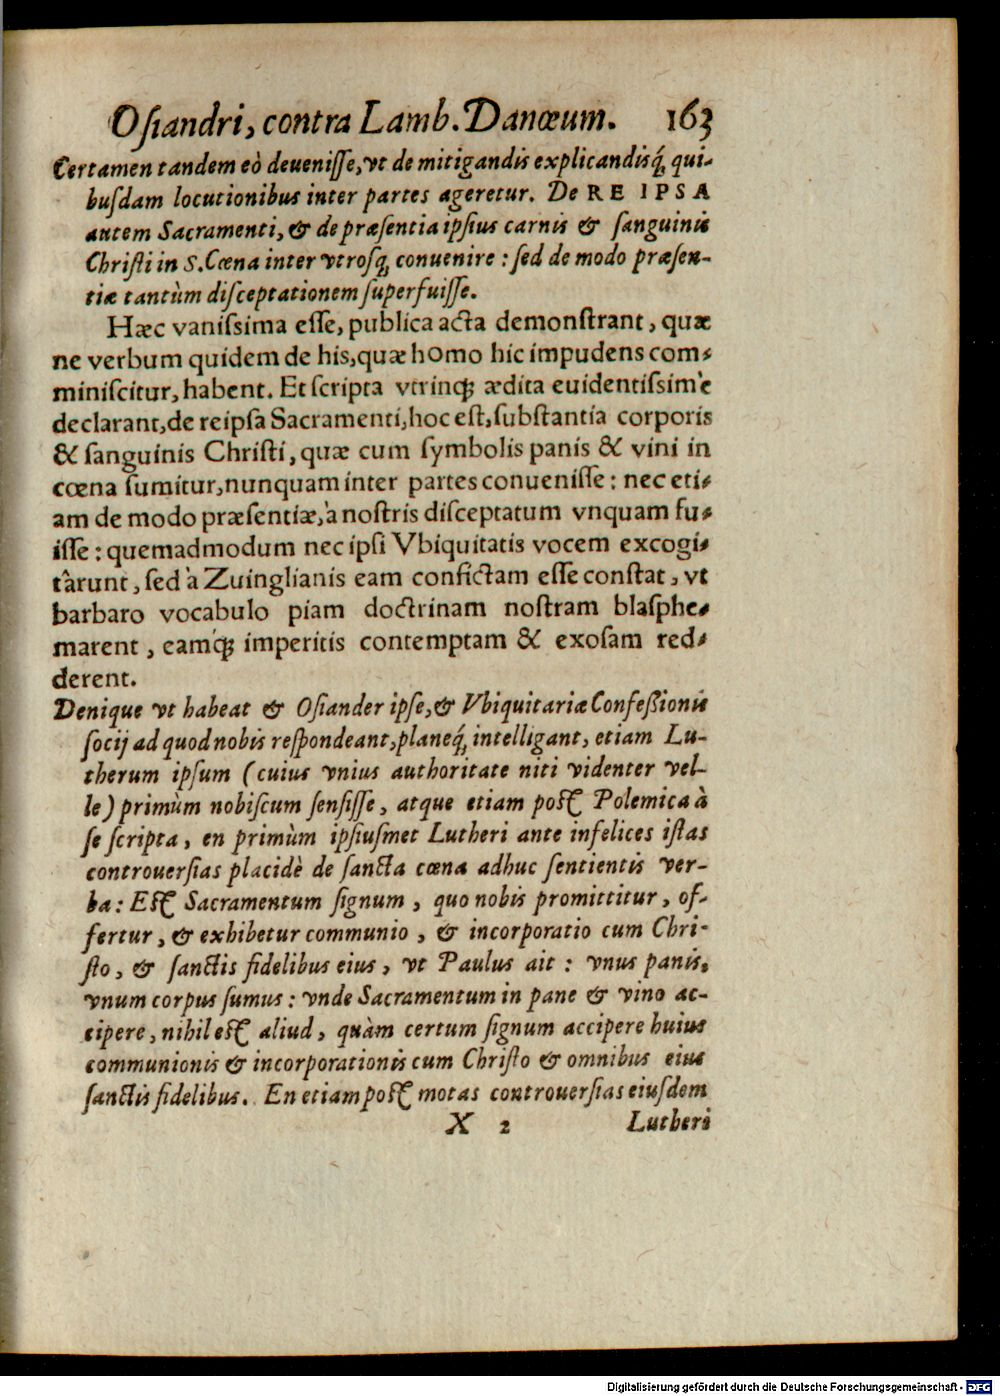 Oſiandri, contra Lamb. Danœum. 163
Certamen tandem eò deueniſſe, vt de mitigandis explicandisq́; qui-
buſdam locutionibus inter partes ageretur. De RE IPSA
autem Sacramenti, & de præſentia ipſius carnis & ſanguinis
Chriſti in S. Cœna inter vtroſq; conuenire : ſed de modo præſen-
tiæ tantùm diſceptationem ſuperfuiſſe.
Hæc vaniſsima eſſe, publica acta demonſtrant, quæ
ne verbum quidem de his, quæ homo hic impudens com-
miniſcitur, habent. Et ſcripta vtrinq; ædita euidentiſsimè
declarant, de reipſa Sacramenti, hoc eſt, ſubſtantia corporis
& ſanguinis Chriſti, quæ cum ſymbolis panis & vini in
cœna ſumitur, nunquam inter partes conueniſſe : nec eti-
am de modo præſentiæ, à noſtris diſceptatum vnquam fu-
iſſe : quemadmodum nec ipſi Vbiquitatis vocem excogi-
târunt, ſed à Zuinglianis eam confictam eſſe conſtat, vt
barbaro vocabulo piam doctrinam noſtram blaſphe-
marent, eamq́; imperitis contemptam & exoſam red-
derent.
Denique vt habeat & Oſiander ipſe, & Vbiquitariæ Confeßionis
ſocij ad quod nobis reſpondeant, planeq́; intelligant, etiam Lu-
therum ipſum (cuius vnius authoritate niti videnter vel-
le) primùm nobiſcum ſenſiſſe, atque etiam poſt Polemica à
ſe ſcripta, en primùm ipſiuſmet Lutheri ante infelices iſtas
controuerſias placidè de ſancta cœna adhuc ſentientis ver-
ba : Eſt Sacramentum ſignum, quo nobis promittitur, of-
fertur, & exhibetur communio, & incorporatio cum Chri-
ſto, & ſanctis fidelibus eius, vt Paulus ait : vnus panis,
vnum corpus ſumus : vnde Sacramentum in pane & vino ac-
cipere, nihil eſt aliud, quàm certum ſignum accipere huius
communionis & incorporationis cum Chriſto & omnibus eius
ſanctis fidelibus. En etiam poſt motas controuerſias eiuſdem
X 2 Lutheri
Digitalisierung gefördert durch die Deutsche Forschungsgemeinschaft - DFG